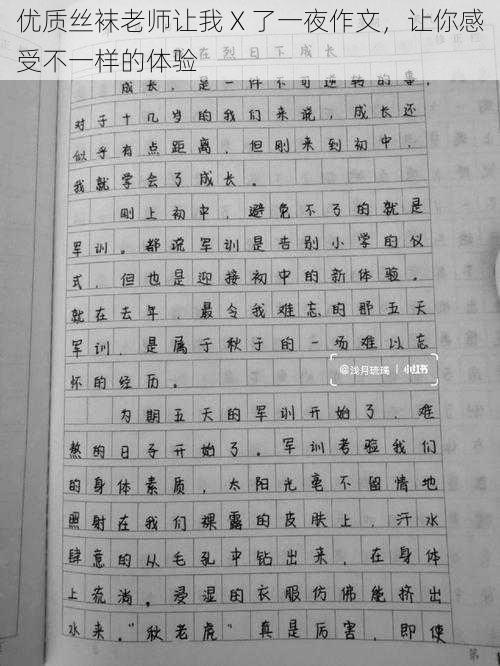 优质丝袜老师让我 X 了一夜作文，让你感
受不一样的体验
在烈日下成长
成长，是一件不可逆转的事，
对于十几岁的我们来说，成长还
似乎有点距离，但刚来到初中，
我就学会了成长。
刚上初中，避免不了的就是
军训。都说军训是告别小学的仪
式，但也是迎接初中的新体验。
就在去年，最令我难忘的那五天
军训，是属于秋子的一场难以忘
怀的经历。
@浅月琉璃 | 小红书
为期五天的军训开始了，难
熬的日子开始了。军训考验我们
的身体素质，太阳光毫不留情地
照射在我们裸露的皮肤上，汗水
肆意的从毛孔中钻出来，在身体
上流淌。浸湿的衣服仿佛能挤出
水来。"秋老虎"真是厉害，即使
第